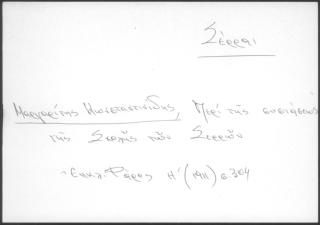 Σέρραι
Μαργαρίτης Κωνσταντινίδης, Περί της συστάσεως
της Σχολής των Σερρών
Εκκλ. Φάρος Η' (1911) σ. 364